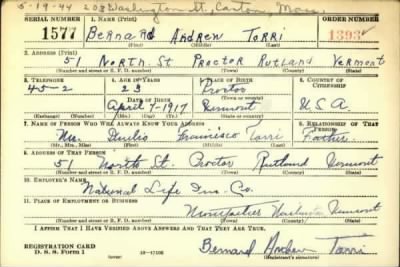 5-19-44 208 Washington St, Canton, Mass.
SERIAL NUMBER 1. NAME (Print) ORDER NUMBER
1577 BERNARD ANDREW TORRI 1393
(First) (Middle) (Last)
2. ADDRESS (Print)
51 NORTH. St PROCTOR RUTLAND VERMONT
(Number and street or R. F. D. number) (Town) (County) (State)
3. TELEPHONE 4. AGE IN YEARS 5. PLACE OF BIRTH 6. COUNTRY OF CITIZENSHIP
45-2 23 Proctor
DATE OF BIRTH (Town or county)
April 7-1917 Vermont U.S.A.
(Exchange) (Number) (Mo.) (Day) (Yr.) (State or country)
7. NAME OF PERSON WHO WILL ALWAYS KNOW YOUR ADDRESS 8. RELATIONSHIP OF THAT PERSON
Duilio Francisco Torri Father
(Mr., Mrs., Miss) (First) (Middle) (Last)
9. ADDRESS OF THAT PERSON
51 North St. Proctor Rutland Vermont
(Number and street or R. F. D. number) (Town) (County) (State)
10. EMPLOYER'S NAME
National Life Ins. Co.
11. PLACE OF EMPLOYMENT OR BUSINESS
Montpelier Washington Vermont
(Number and street or R. F. D. number) (Town) (County) (State)
I AFFIRM THAT I HAVE VERIFIED ABOVE ANSWERS AND THAT THEY ARE TRUE.
REGISTRATION CARD
D. S. S. Form 1 Bernard Andrew Torri
(Registrant's signature)